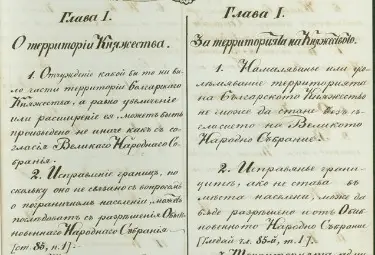 Глава I.
О территоріи Княжества.
1. Отчужденіе какой бы то ни бы-
ло части территоріи Болгарскаго
Княжества, а равно увеличеніе
или расширеніе ея можетъ быть
произведено не иначе какъ съ со-
гласія Великаго Народнаго Со-
бранія.
2. Исправленіе границъ, по-
скольку оно не связано съ вопросомъ
о пограничномъ населеніи, можетъ
послѣдовать съ разрѣшенія Обык-
новеннаго Народнаго Собранія
[ст. 85, п. 1].
Глава I.
За территорията на Княжеството.
1. Намаляванье или уго-
лѣмяванье территорията
на Българското Княжество
не може да стане безъ съ-
гласието на Великото
Народно Събрание.
2. Исправянье грани-
цитѣ, ако не става въ
мѣста населени, може да
бъде разрѣшено и отъ Обик-
новенното Народно Събрание
[Гледай гл. 85-й, т. 1].